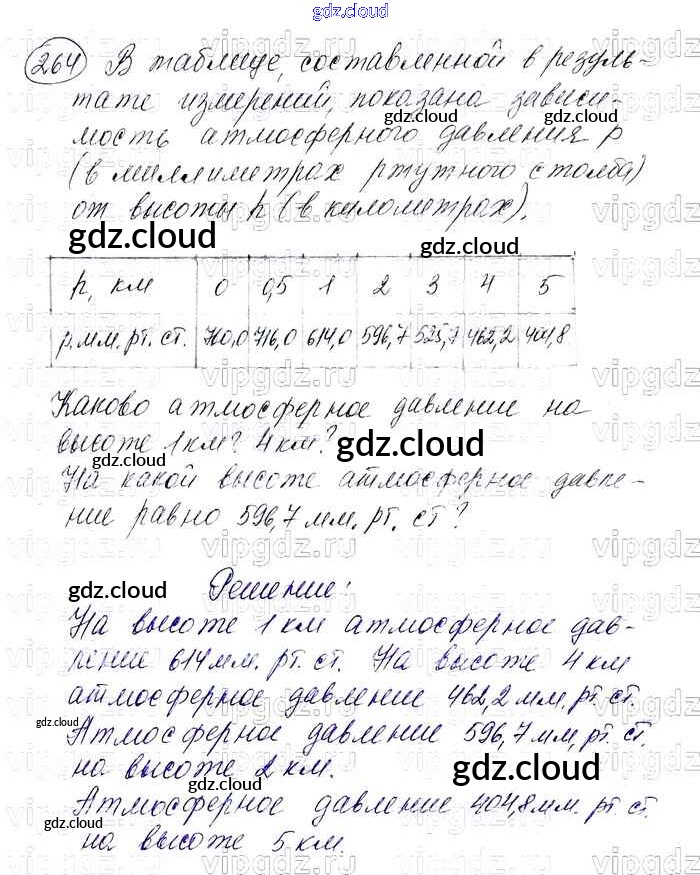 gdz.cloud
264 В таблице, составленной в резуль-
тате измерений, показана зависи-
мость атмосферного давления p
(в миллиметрах ртутного столба)
от высоты h (в километрах).
gdz.cloud gdz.cloud
h, км 0 0,5 1 2 3 4 5
p, мм. рт. ст. 760,0 716,0 614,0 596,7 525,7 462,2 404,8
Каково атмосферное давление на
высоте 1 км? 4 км?
gdz.cloud gdz.cloud
На какой высоте атмосферное давле-
ние равно 596,7 мм. рт. ст?
gdz.cloud Решение:
На высоте 1 км атмосферное дав-
ление 614 мм. рт. ст. На высоте 4 км
атмосферное давление 462,2 мм. рт. ст.
gdz.cloud
Атмосферное давление 596,7 мм, рт. ст.
на высоте 2 км.
gdz.cloud
Атмосферное давление 404,8 мм. рт. ст.
gdz.cloud
на высоте 5 км.